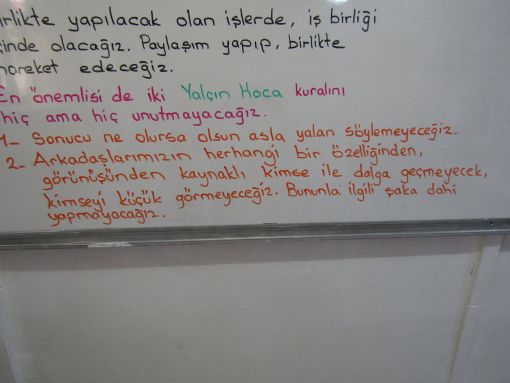 irlikte yapılacak olan işlerde, iş birliği
çinde olacağız. Paylaşım yapıp, birlikte
hareket edeceğiz.
En önemlisi de iki Yalçın Hoca kuralını
hiç ama hiç unutmayacağız.
1- Sonucu ne olursa olsun asla yalan söylemeyeceğiz.
2- Arkadaşlarımızın herhangi bir özelliğinden,
görünüşünden kaynaklı kimse ile dalga geçmeyecek,
kimseyi küçük görmeyeceğiz. Bununla ilgili şaka dahi
yapmayacağız.